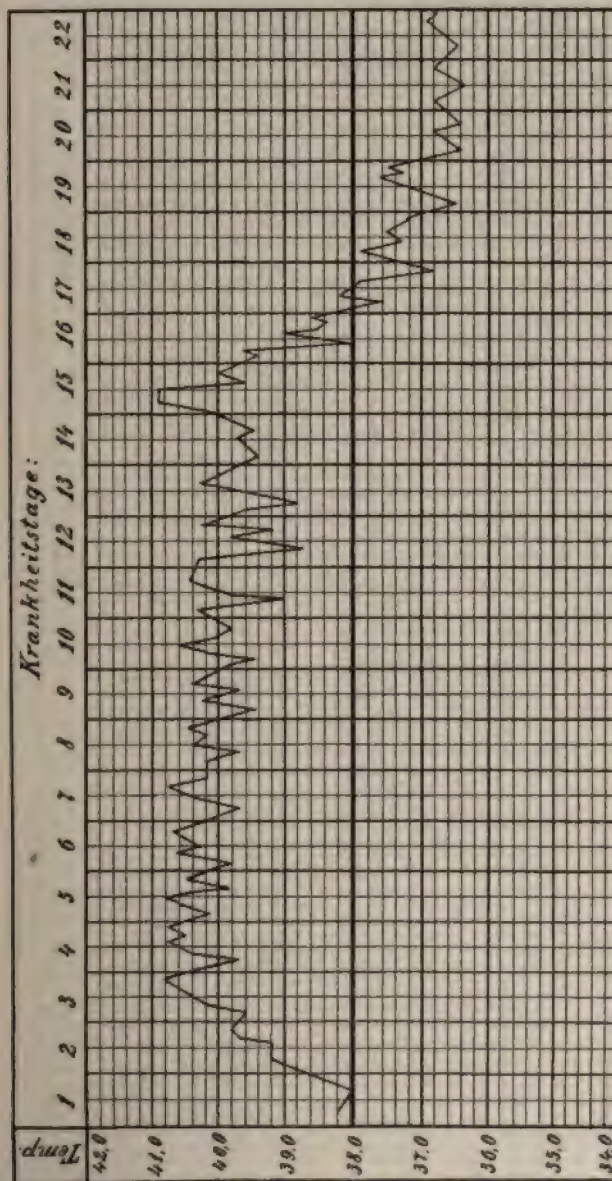 Krankheitstage:
Temp. 1 2 3 4 5 6 7 8 9 10 11 12 13 14 15 16 17 18 19 20 21 22
42,0
41,0
40,0
39,0
38,0
37,0
36,0
35,0
34,0